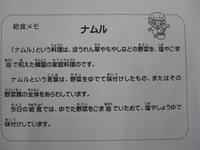 給食メモ
ナムル
「ナムル」という料理は、ほうれん草やもやしなどの野菜を、塩やごま
油で和えた韓国の家庭料理のです。
ナムルという言葉は、野菜をゆでて味付けしたもの、またはその
野菜類の全体をあらわしています。
今日の給食では、ゆでた野菜をごま油でいためて、塩やしょうゆで
味付けしています。